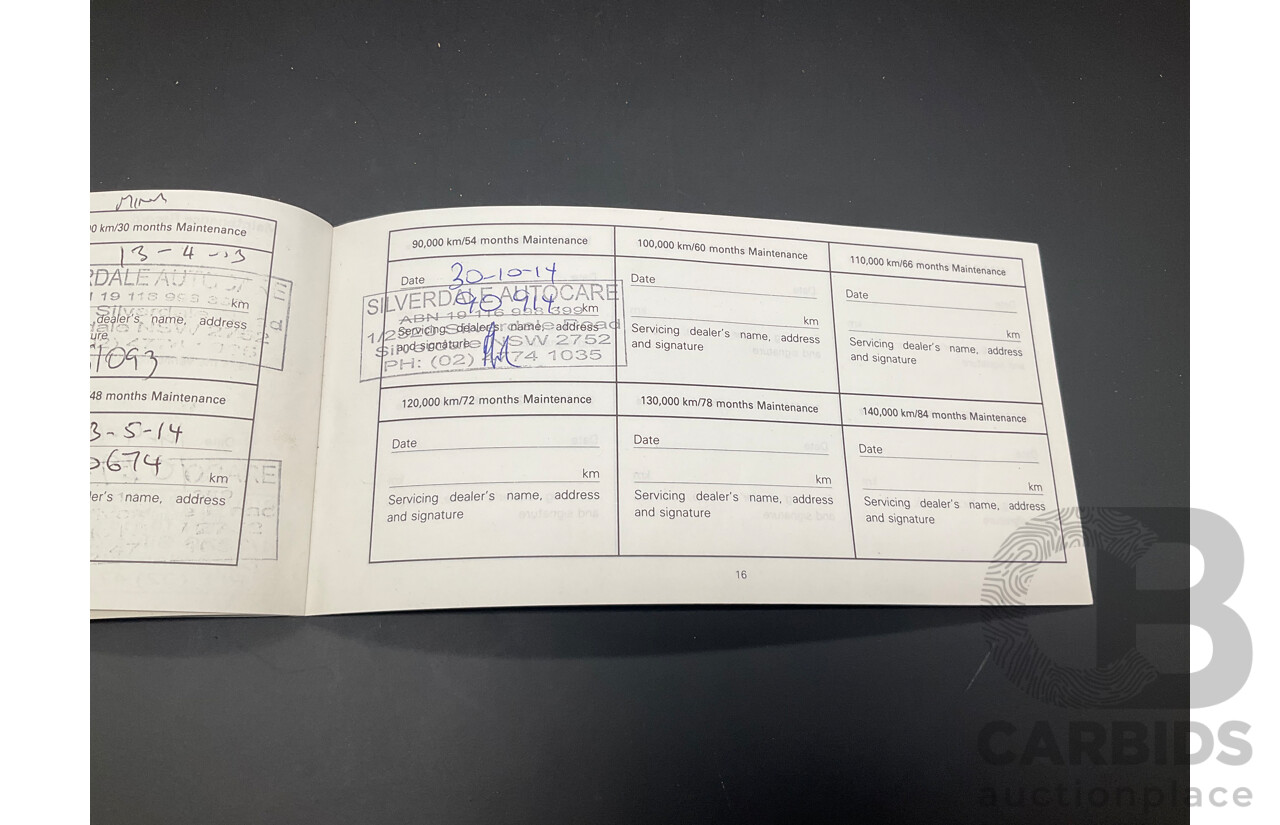 0 km/30 months Maintenance
13-4-13
RDALE AUTO
19 118 993 3
km
dealer's, name, address
1093
48 months Maintenance
3-5-14
0674
km
er's name, address
90,000 km/54 months Maintenance
Date 30-10-14
90 914 km
SILVERDALE AUTOCARE
ABN 19 118 993 399
Servicing dealer's name, address
and signature
NSW 2752
PH: (02) 4774 1035
100,000 km/60 months Maintenance
Date
km
Servicing dealer's name, address
and signature
110,000 km/66 months Maintenance
Date
km
Servicing dealer's name, address
and signature
120,000 km/72 months Maintenance
Date
km
Servicing dealer's name, address
and signature
130,000 km/78 months Maintenance
Date
km
Servicing dealer's name, address
and signature
140,000 km/84 months Maintenance
Date
km
Servicing dealer's name, address
and signature
16
CARBIDS
auctionplace